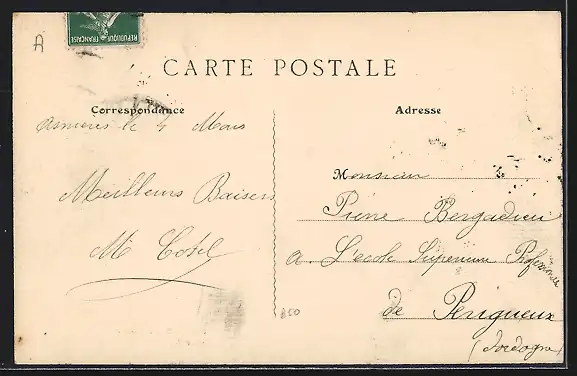 A
REPUBLIQUE FRANÇAISE
CARTE POSTALE
Correspondance
Adresse
Asnieres le 4 Mars
Meilleurs Baisers
M Cotel
Monsieur
Pierre Bergadieu
a L'ecole Superieure Professionnelle
de Perigueux
(Dordogne)
B50